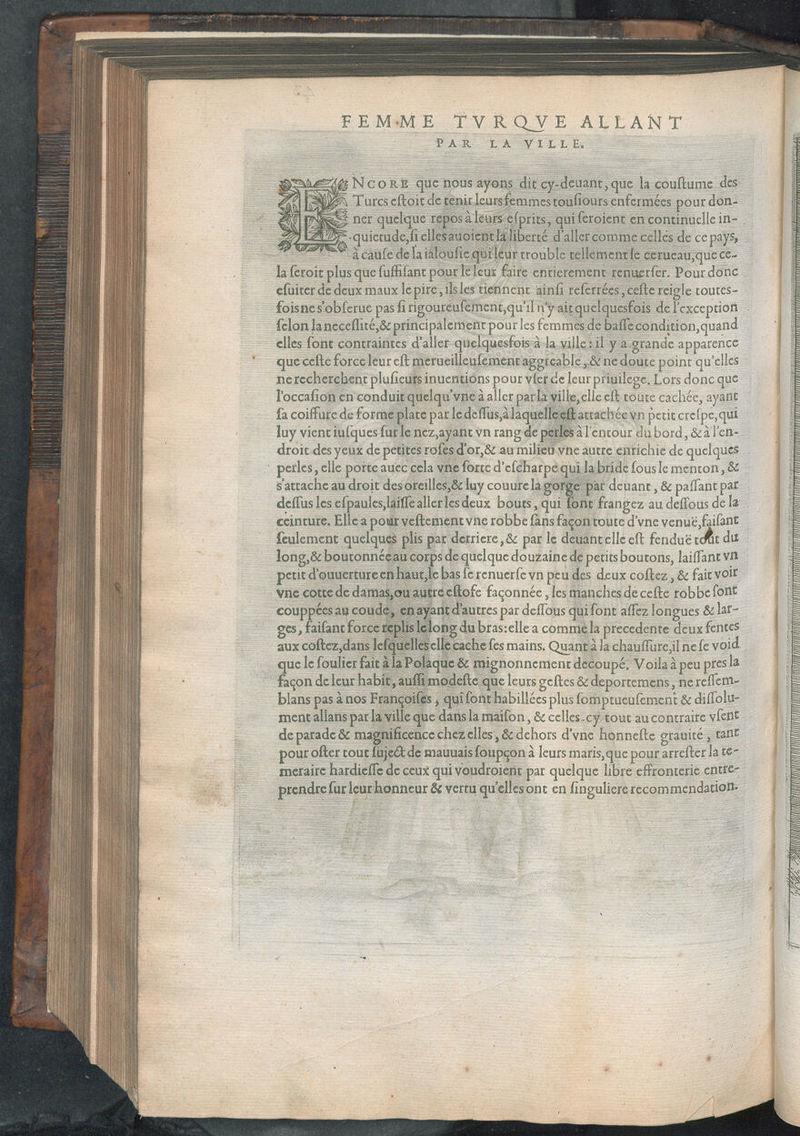 FEMME TVRQVE ALLANT
PAR LA VILLE.
ENCORE que nous ayons dit cy-deuant, que la couſtume des
Turcs eſtoit de tenir leurs femmes touſiours enfermées pour don-
ner quelque repos à leurs eſprits, qui ſeroient en continuelle in-
quietude, ſi elles auoient la liberté d'aller comme celles de ce pays,
à cauſe de la ialouſie qui leur trouble tellement le cerueau, que ce-
la ſeroit plus que ſuffiſant pour le leur faire entierement renuerſer. Pour donc
eſuiter de deux maux le pire, ils les tiennent ainſi reſerrées, ceſte reigle toutes-
fois ne s'obſerue pas ſi rigoureuſement, qu'il n'y ait quelquesfois de l'exception
ſelon la neceſſité, & principalement pour les femmes de baſſe condition, quand
elles ſont contraintes d'aller quelquesfois à la ville: il y a grande apparence
que ceſte force leur eſt merueilleuſement aggreable, & ne doute point qu'elles
ne recherchent pluſieurs inuentions pour vſer de leur priuilege. Lors donc que
l'occaſion en conduit quelqu'vne à aller par la ville, elle eſt toute cachée, ayant
ſa coiffure de forme plate par le deſſus, à laquelle eſt attachée vn petit creſpe, qui
luy vient iuſques ſur le nez, ayant vn rang de perles à l'entour du bord, & à l'en-
droit des yeux de petites roſes d'or, & au milieu vne autre enrichie de quelques
perles, elle porte auec cela vne ſorte d'eſcharpe qui la bride ſous le menton, &
s'attache au droit des oreilles, & luy couure la gorge par deuant, & paſſant par
deſſus les eſpaules, laiſſe aller les deux bouts, qui ſont frangez au deſſous de la
ceinture. Elle a pour veſtement vne robbe ſans façon toute d'vne venuë, faiſant
ſeulement quelques plis par derriere, & par le deuant elle eſt fenduë tout du
long, & boutonnée au corps de quelque douzaine de petits boutons, laiſſant vn
petit d'ouuerture en haut, le bas ſe renuerſe vn peu des deux coſtez, & fait voir
vne cotte de damas, ou autre eſtofe façonnée, les manches de ceſte robbe ſont
couppées au coude, en ayant d'autres par deſſous qui ſont aſſez longues & lar-
ges, faiſant force replis le long du bras: elle a comme la precedente deux fentes
aux coſtez, dans leſquelles elle cache ſes mains. Quant à la chauſſure, il ne ſe void
que le ſoulier fait à la Polaque & mignonnement decoupé. Voila à peu pres la
façon de leur habit, auſſi modeſte que leurs geſtes & deportemens, ne reſſem-
blans pas à nos Françoiſes, qui ſont habillées plus ſomptueuſement & diſſolu-
ment allans par la ville que dans la maiſon, & celles-cy tout au contraire vſent
de parade & magnificence chez elles, & dehors d'vne honneſte grauité, tant
pour oſter tout ſuject de mauuais ſoupçon à leurs maris, que pour arreſter la te-
meraire hardieſſe de ceux qui voudroient par quelque libre effronterie entre-
prendre ſur leur honneur & vertu qu'elles ont en ſinguliere recommendation.